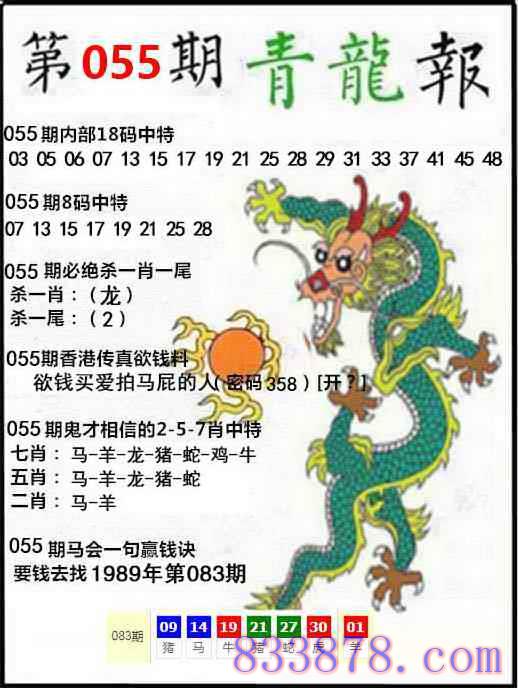 第055期青龍報
055期内部18码中特
03 05 06 07 13 15 17 19 21 25 28 29 31 33 37 41 45 48
055期8码中特
07 13 15 17 19 21 25 28
055 期必绝杀一肖一尾
杀一肖：(龙)
杀一尾：(2)
055期香港传真欲钱料
欲钱买爱拍马屁的人(密码358)[开?]
055期鬼才相信的2-5-7肖中特
七肖：马-羊-龙-猪-蛇-鸡-牛
五肖：马-羊-龙-猪-蛇
二肖：马-羊
055期马会一句赢钱诀
要钱去找1989年第083期
083期 09 14 19 21 27 30 01
猪 马 牛 猪 蛇 虎 羊
833878.com